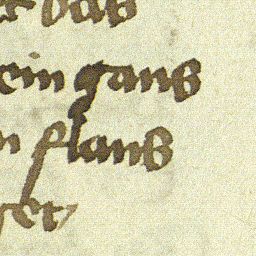 das
ein gans
n flans
get